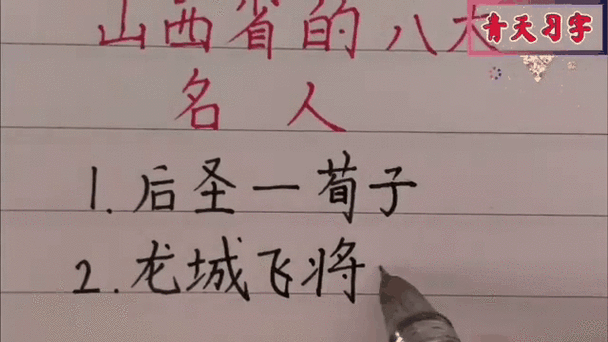 山西省的八大
青天习字
名人
1.后圣一荀子
2.龙城飞将